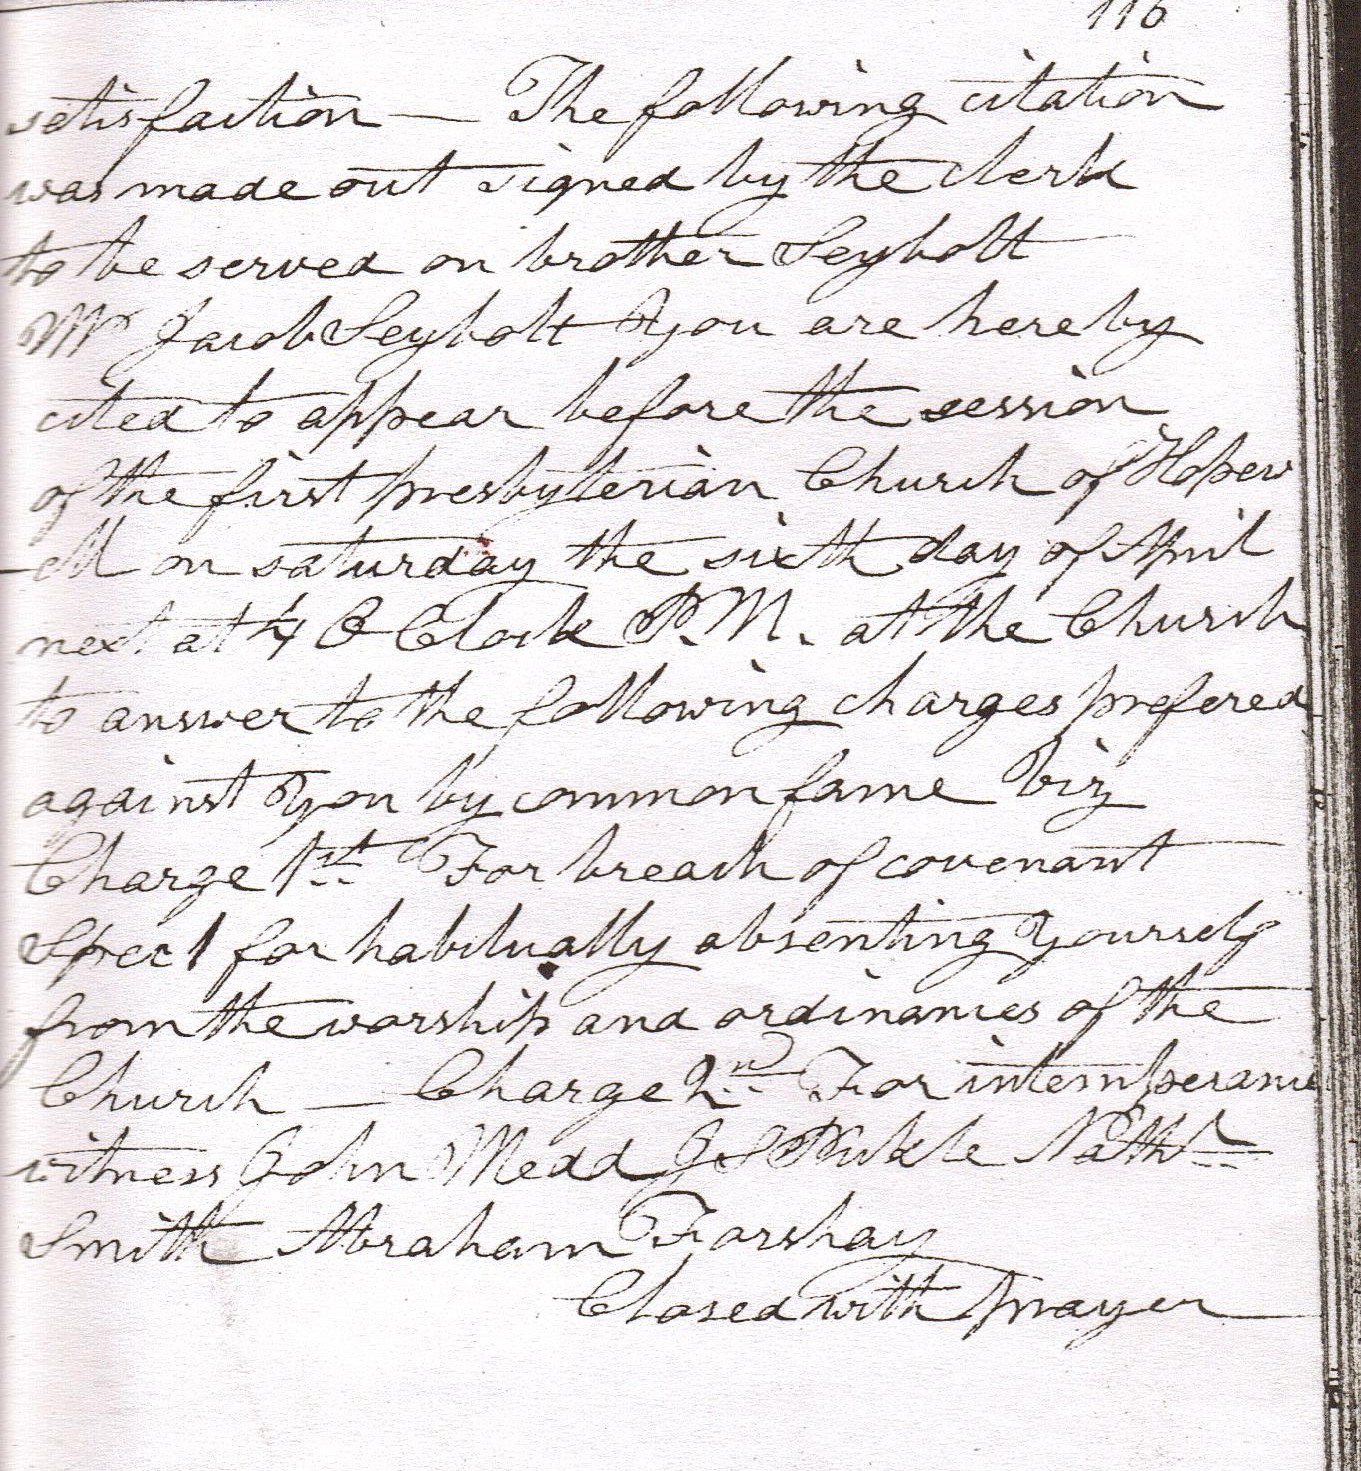 116
satisfaction — The following citation
was made out signed by the clerk
to be served on brother Seybolt
Mr Jacob Seybolt You are hereby
cited to appear before the session
of the first presbyterian Church of Hopew
-ell on saturday the sixth day of April
next at 4 O Clock P.M. at the Church
to answer to the following charges prefered
against you by common fame viz
Charge 1st For breach of covenant
Spec 1 for habitually absenting yourself
from the worship and ordinances of the
Church — Charge 2nd For intemperance
witness John Mead J S Pukle Nathl
Smith Abraham Forshay
Closed with prayer